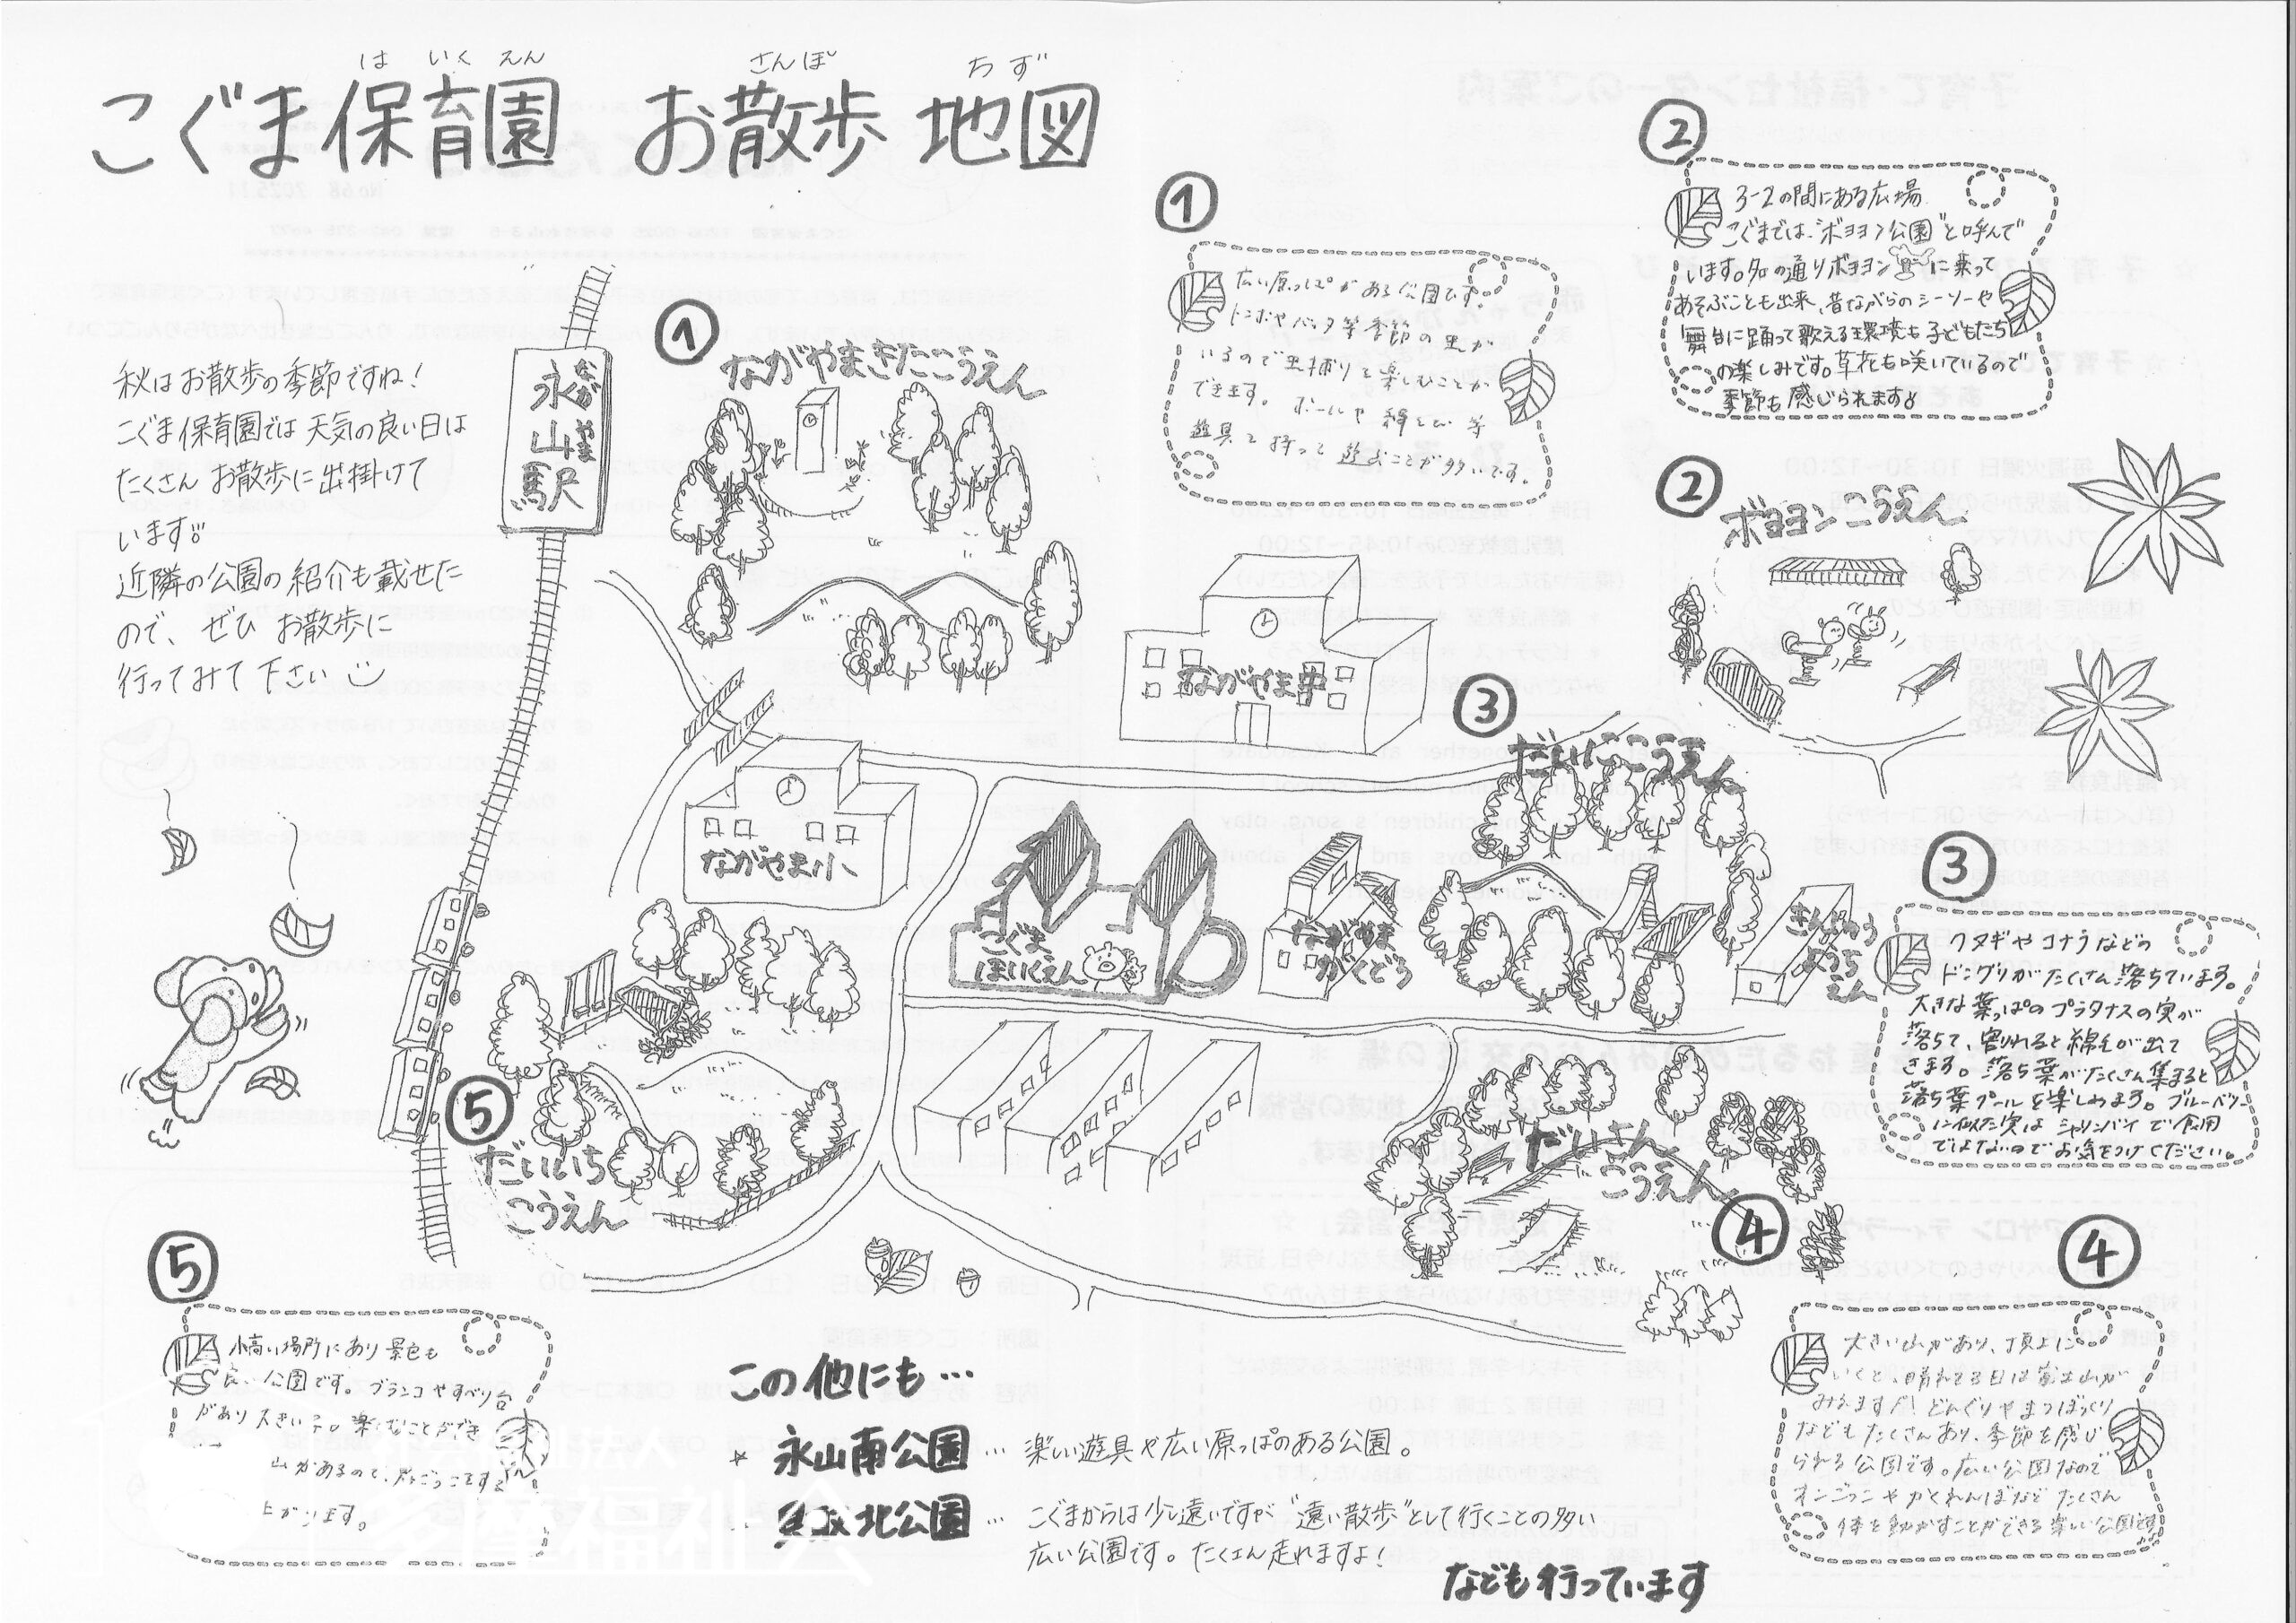 こぐま保育園 お散歩 地図
は いく えん さんぽ ちず
秋はお散歩の季節ですね!
こぐま保育園では天気の良い日は
たくさんお散歩に出掛けて
います!!
近隣の公園の紹介も載せた
ので、ぜひお散歩に
行ってみて下さい
永山駅
ながやま
①
ながやまきたこうえん
①
広い原っぱがある公園です。
トンボやバッタ等季節の虫が
いるので虫捕りを楽しむことが
できます。ボールや縄とび等
遊具を持って遊ぶことが多いです。
②
3-2の間にある広場
こぐまでは“ボヨヨン公園”と呼んで
います。名の通りボヨヨンに乗って
あそぶことも出来、昔ながらのシーソーや
舞台に踊って歌える環境も子どもたち
の楽しみです。草花も咲いているので
季節も感じられます♪
②
ボヨヨンこうえん
ながやま中
③
だいにこうえん
ながやま小
こぐま
ほいくえん
ながやま
がくどう
ようち
えん
③
クヌギやコナラなどの
ドングリがたくさん落ちています。
大きな葉っぱのプラタナスの実が
落ちて、割れると綿毛が出て
きます。落ち葉がたくさん集まると
落ち葉プールを楽しみます。ブルーベリー
に似た実はシャリンバイで食用
ではないのでお気をつけください。
⑤
だいいち
こうえん
だいさん
こうえん
④
④
大きい山があり、頂上に
いくと、晴れてる日は富士山が
みえます!!どんぐりやまつぼっくり
などもたくさんあり、季節を感じ
られる公園です。広い公園なので
オニごっこやかくれんぼなどたくさん
体を動かすことができる楽しい公園です。
⑤
小高い場所にあり景色も
良い公園です。ブランコやすべり台
があり大きい
楽しむことができ
山があるので、
上がります。
社会福祉法人
多摩福祉会
この他にも…
★ 永山南公園 … 楽しい遊具や広い原っぱのある公園。
北公園 … こぐまからは少し遠いですが“遠い散歩”として行くことの多い
広い公園です。たくさん走れますよ!
なども行っています